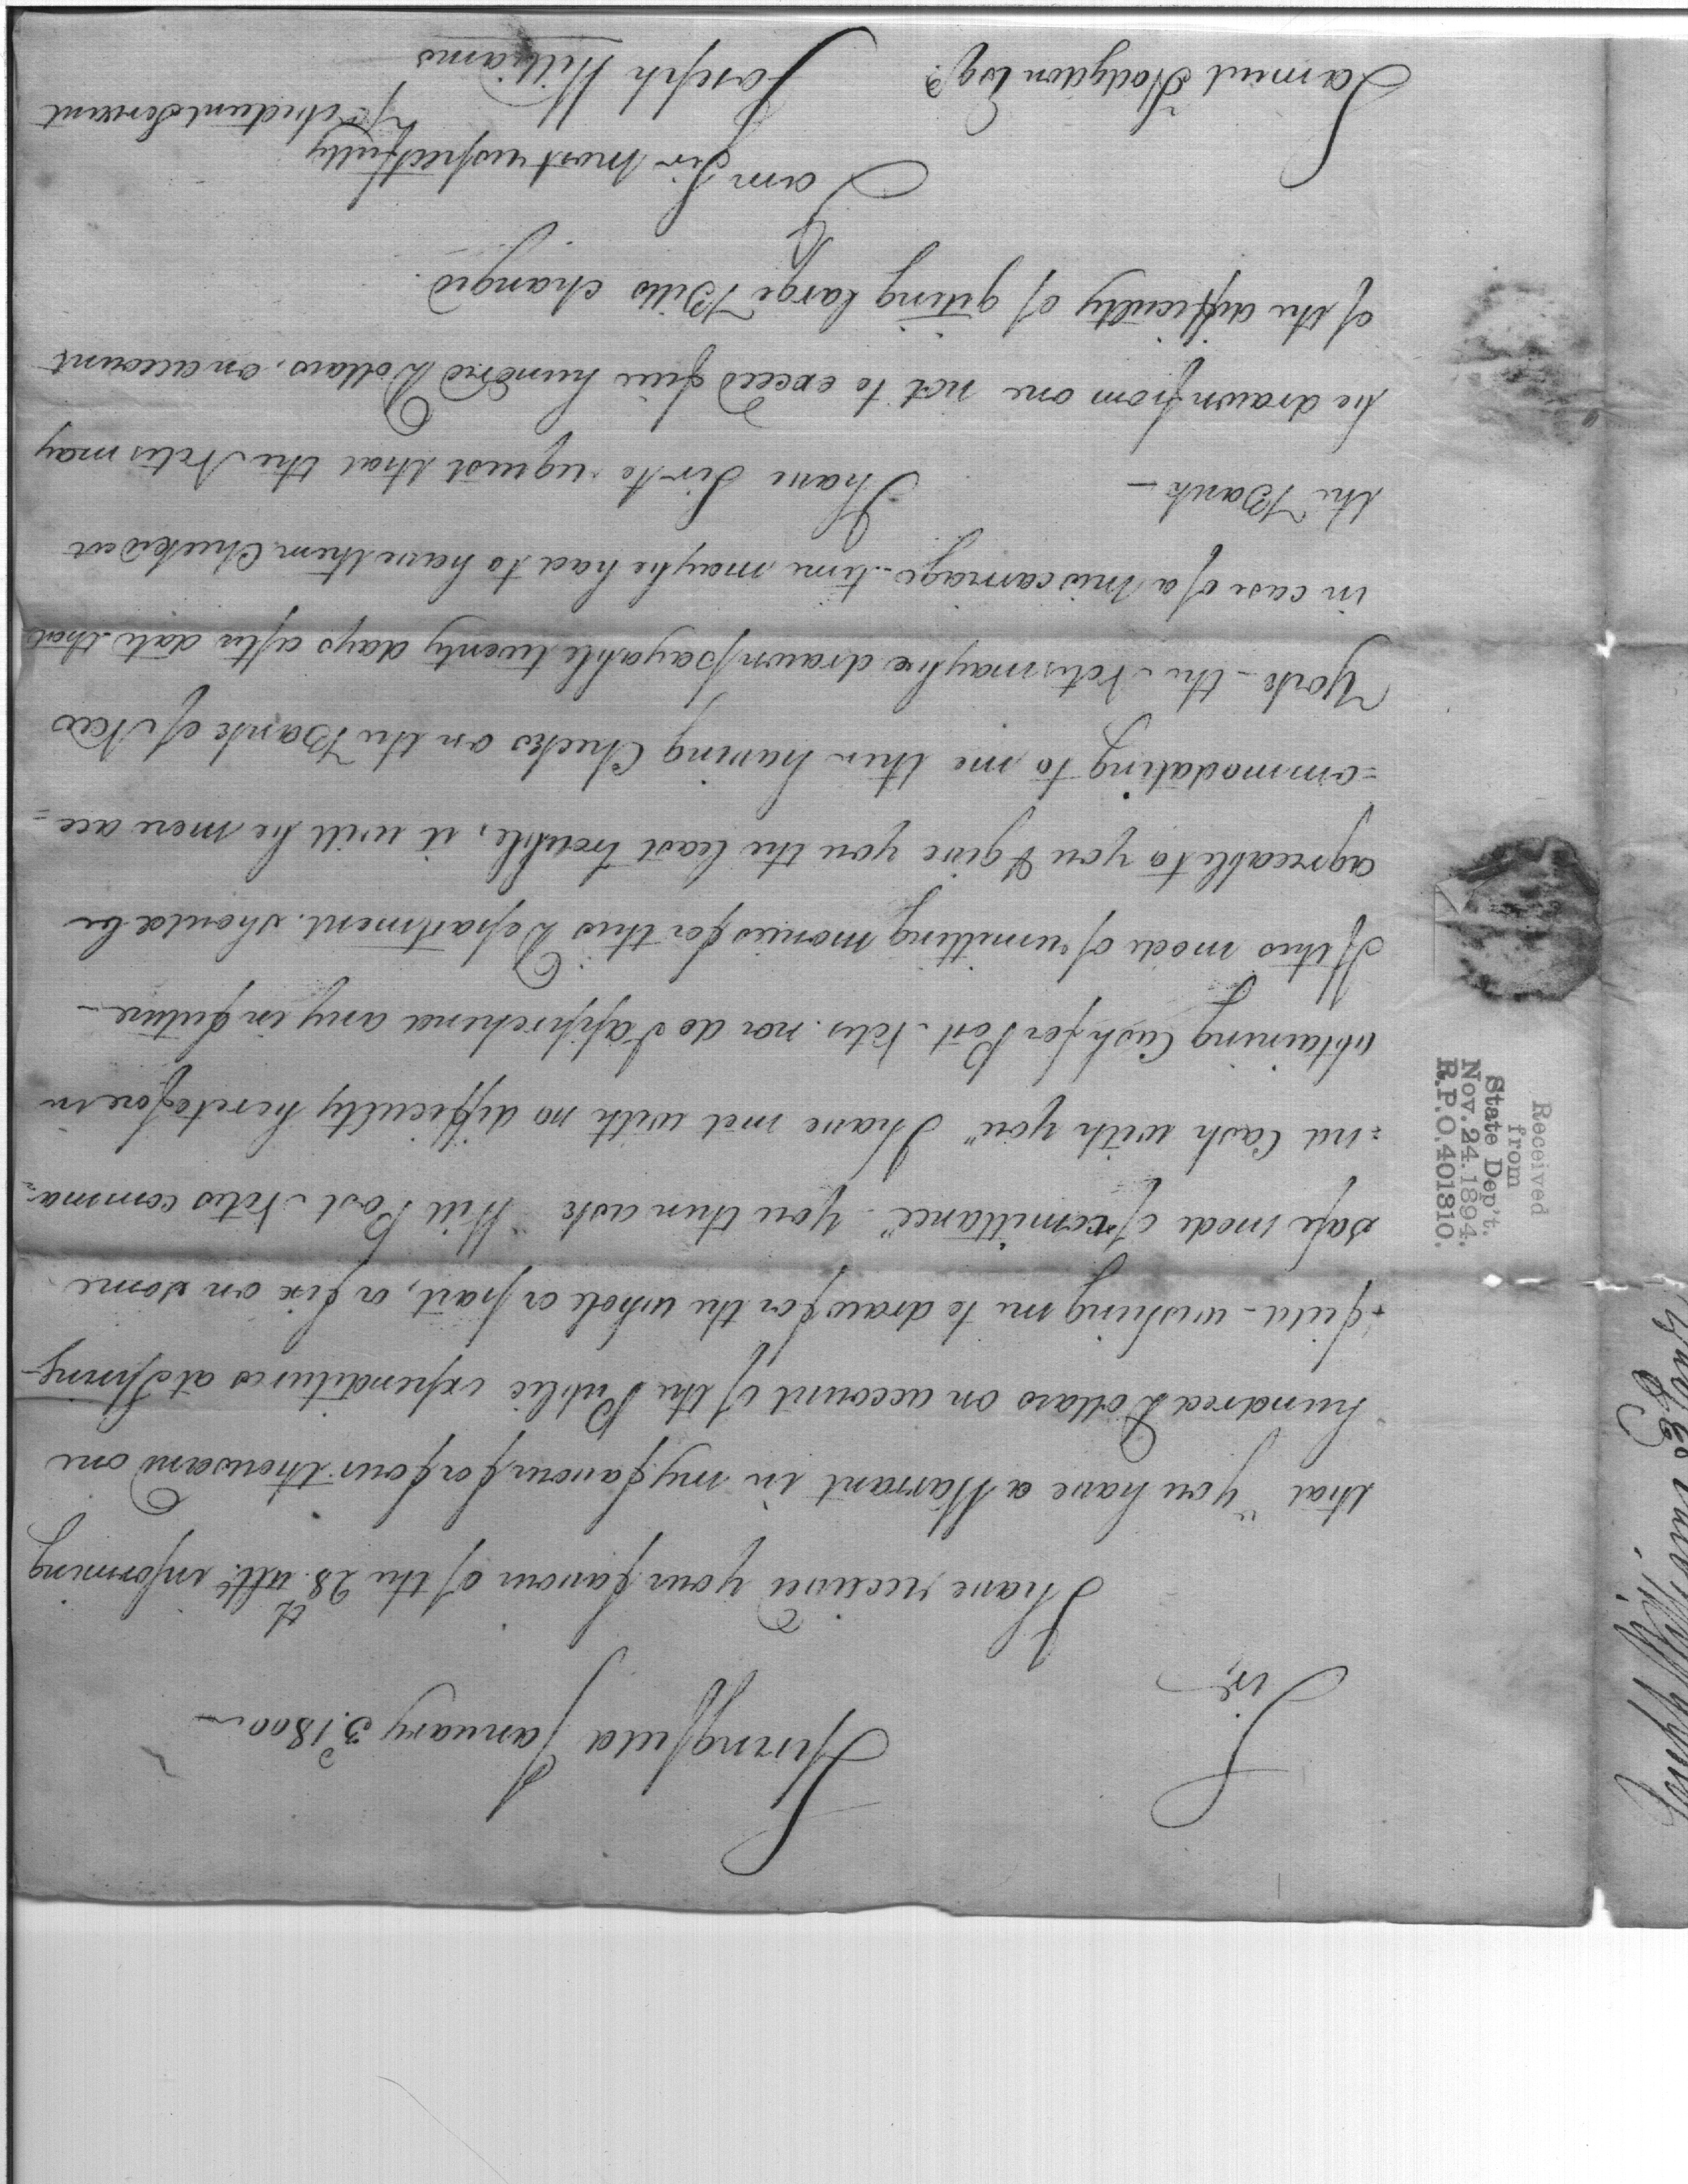 Springfield January 3.d 1800.
Sir,
I have received your favour of the 28.th ulto. informing
that "you have a Warrant in my favour for four thousand one
hundred Dollars on account of the Public expenditures at Spring-
-field - wishing me to draw for the whole or part, or fix on some
safe mode of remittance" - you then ask "Will Post Notes comma=
=nd Cash with you" I have met with no difficulty heretofore in
obtaining Cash for Post Notes. nor do I apprehend any in future -
If this mode of remitting monies for this Department. should be
agreeable to you & give you the least trouble, it will be more acc=
=ommodating to me then having Checks on the Bank of New
York - the Notes may be drawn payable twenty days after date - that
in case of a miscarriage - time may be had to have them Checked at
the Bank -
I have Sir to request that the Notes may
be drawn from one not to exceed five hundred Dollars. on account
of the difficulty of giting large Bills changed.
I am
Sir most respectfully
Yr Obedient Servent
Joseph Williams
Samuel Hodgdon Esqr.
Received
from
State Dep't.
Nov. 24. 1894.
R. P. O. 401310.
Joseph Williams Esqr.